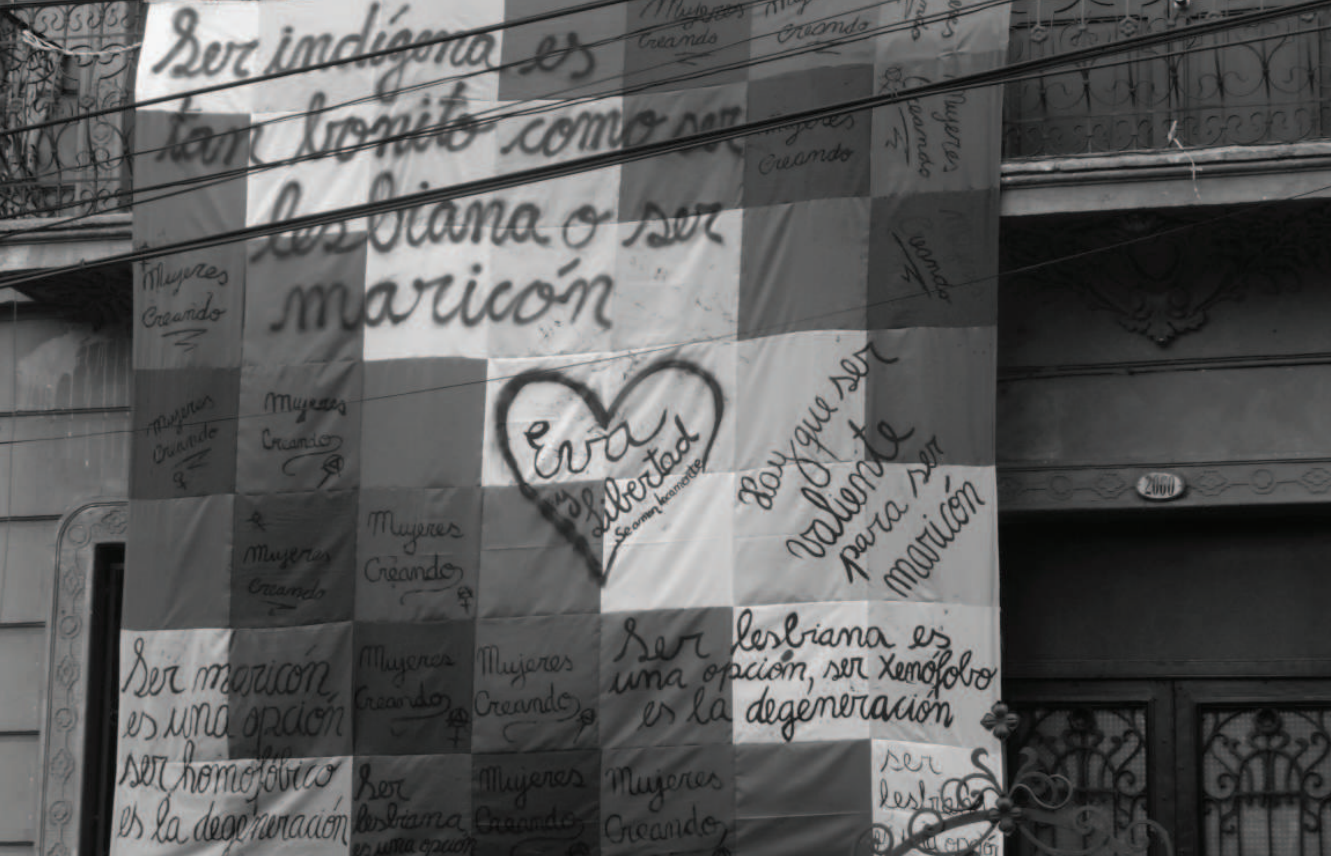 Ser indígena es
tan bonito como ser
lesbiana o ser
maricón
Mujeres
Creando
Mujeres
Creando
Mujeres
Creando
Mujeres
Creando
Creando
Mujeres
Creando
Mujeres
Creando
Mujeres
Creando
Eva
y Libertad
se aman locamente
Hay que ser
valiente
para ser
maricón
2060
Mujeres
Creando
Mujeres
Creando
Ser maricón
es una opción
ser homofóbico
es la degeneración
Mujeres
Creando
Mujeres
Creando
Ser lesbiana es
una opción, ser xenófobo
es la degeneración
Ser
lesbiana
es una opción
Mujeres
Creando
Mujeres
Creando
ser
lesbiana
opción